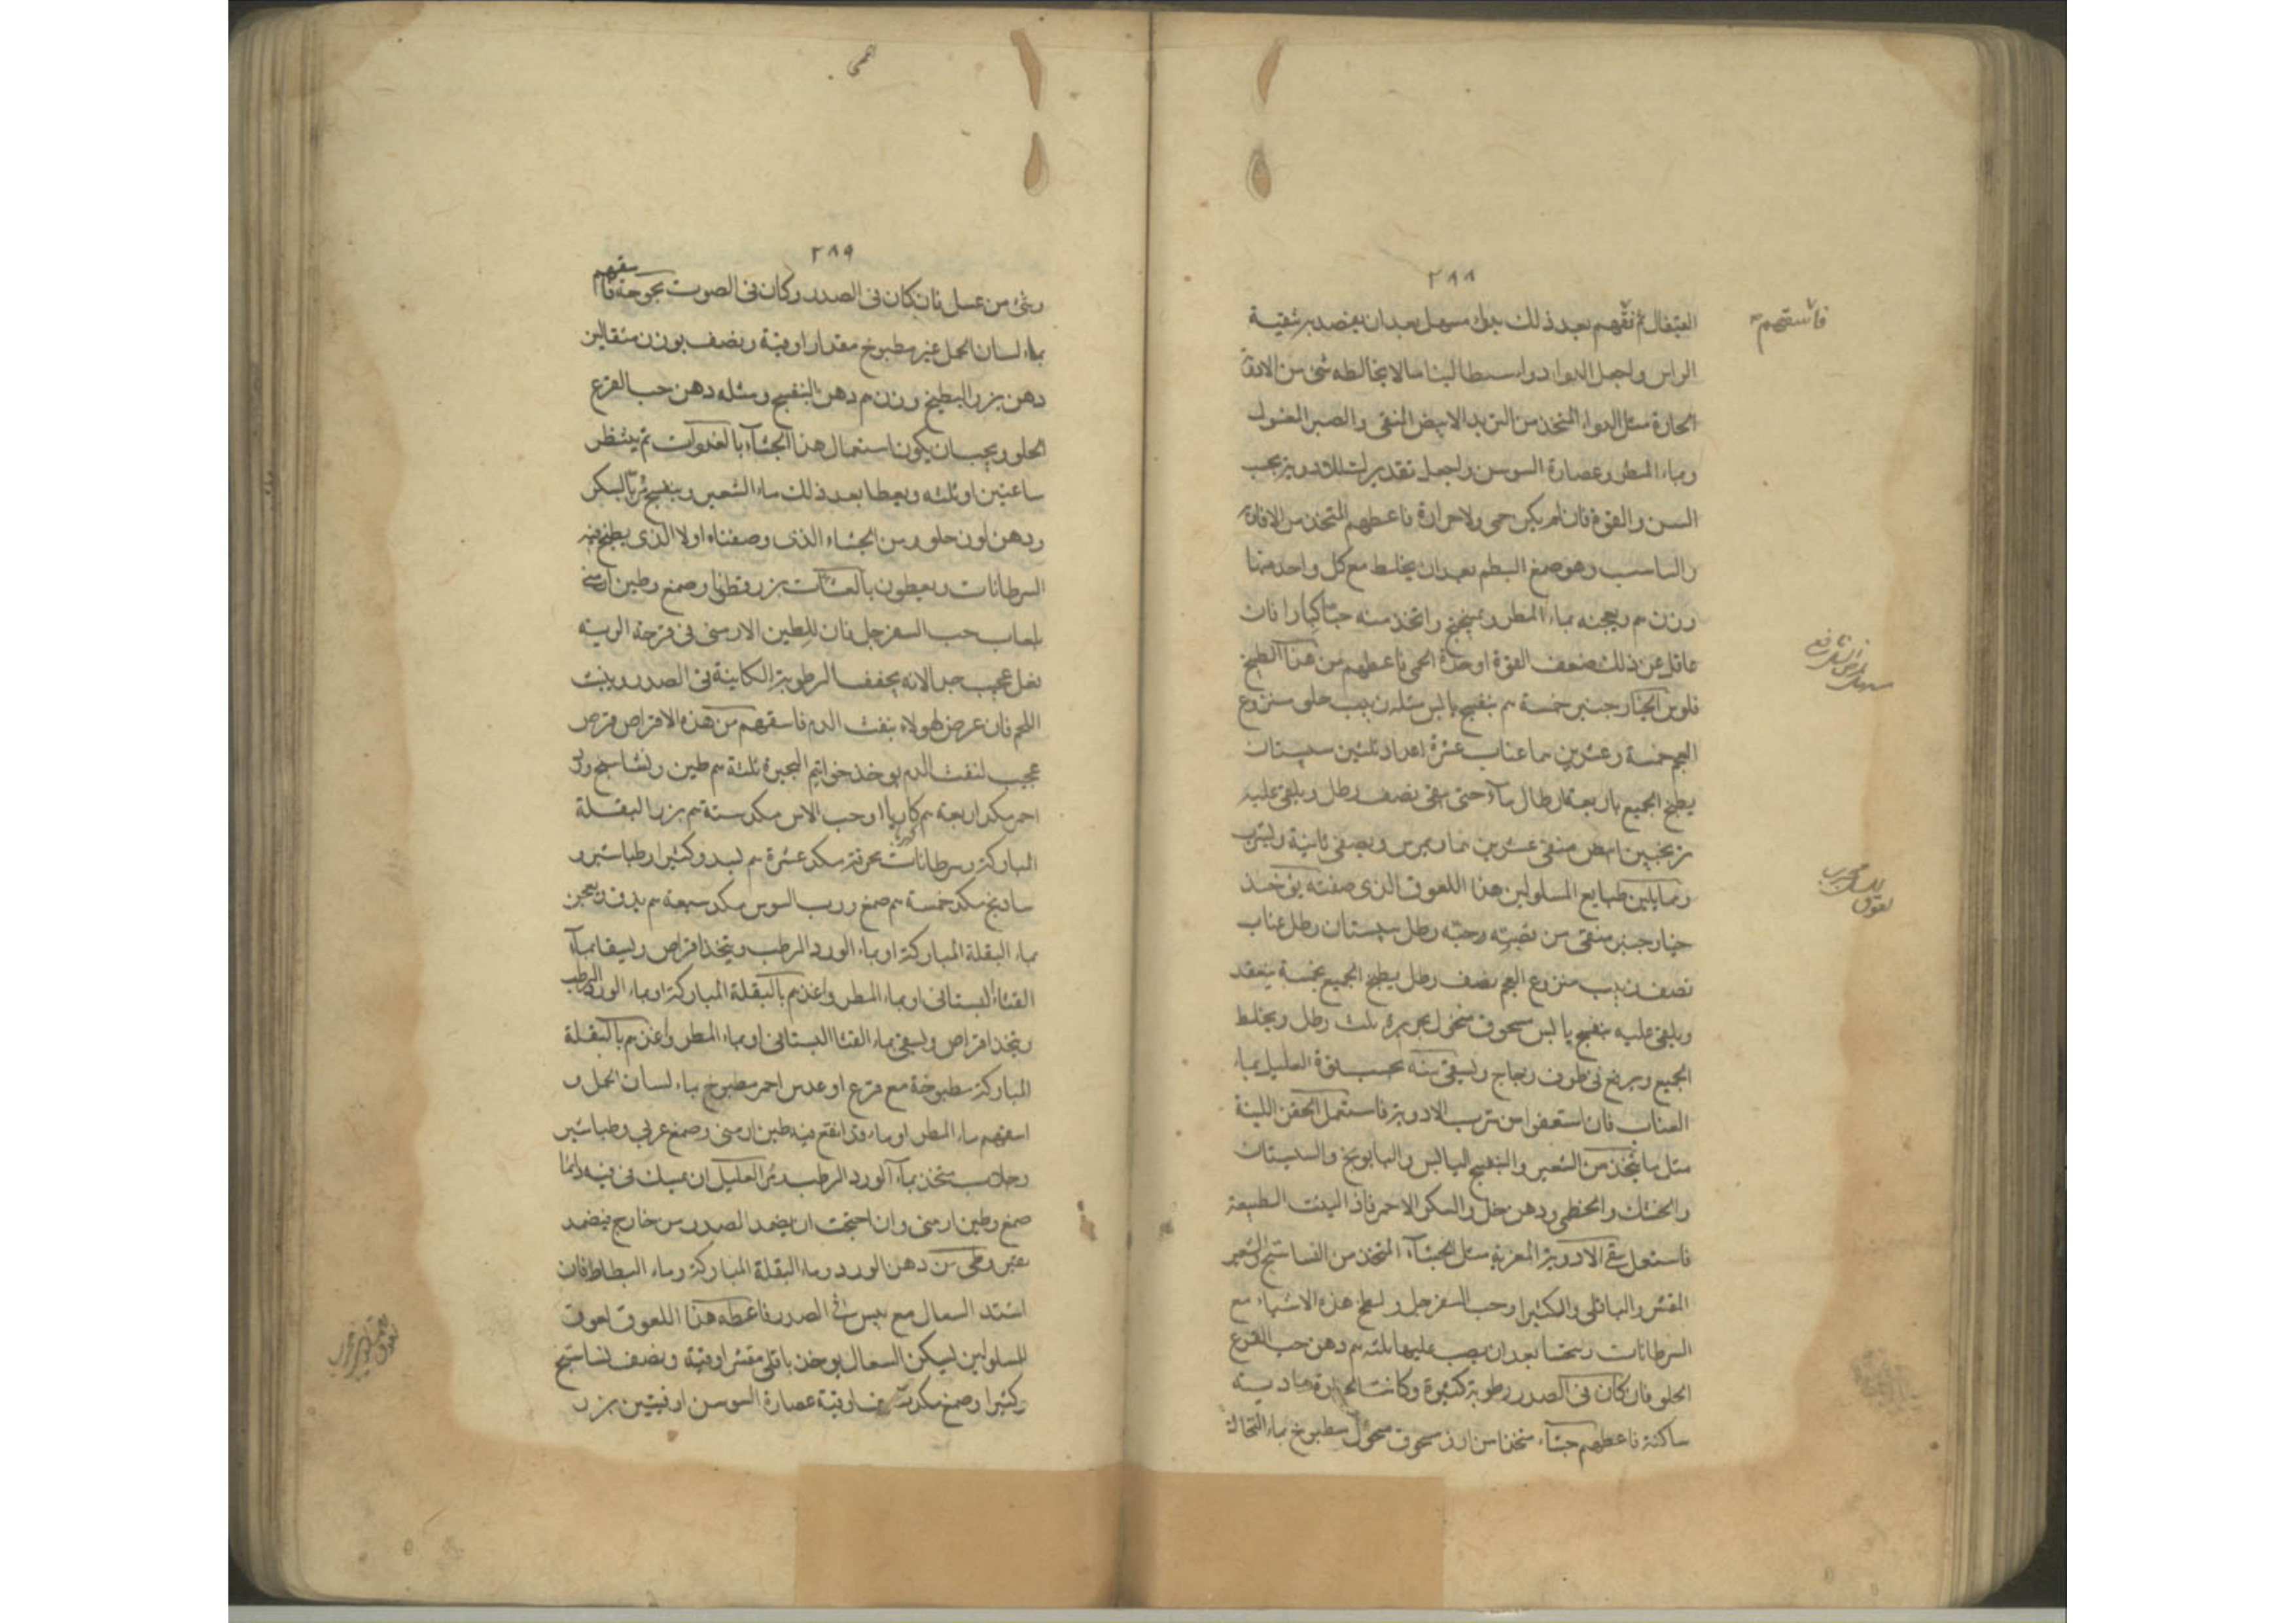 ٢٨٨
القيفال ثم نقهم بعد ذلك بدواء مسهل بعد ان يقصد به تنقية
فاسقهم
الراس واجعل الدواء دواء بسيطا لينا مما لا يخالطه شئ من الادوية
الحارة مثل الدواء المتخذ من التربد الابيض النقي والصبر المغسول
وماء المطر وعصارة السوسن واجعل تقديرك للادوية بحسب
السن والقوة فان لم يكن حمى ولا حرارة فاعطهم المتخذ من الافاوية
والراسب وهو صمغ البطم بعد ان يخلط مع كل واحد منها
وزن م ويعجنه بماء المطر وميبختج واتخذ منه حبا كبارا فان
عاقك عن ذلك ضعف القوة او حدة الحمى فاعطهم من هذا الطبيخ
فلوس الخيار جنبر خمسة م بنفسج يابس مثله زبيب حلو منزوع
العجم خمسة وعشرين عناب عشرة اعداد ثلثين سبستان
يطبخ الجميع باربعة ارطال ماء حتى يبقى نصف رطل ويلقى عليه
ترنجبين ابيض منقى عشرين ويمرس ويصفى ثانية ويشرب
ومما يلين طبايع المسلولين هذا اللعوق الذي صفته يوخذ
خيار جنبر منقى من قصبه وحبه رطل سبستان رطل عناب
نصف زبيب منزوع العجم نصف رطل يطبخ الجميع بخمسة ينعقد
ويلقى عليه بنفسج يابس مسحوق منخول بحريرة ثلث رطل ويخلط
الجميع ويرفع في ظرف زجاج ويسقى منه بحسب قوة العليل بماء
العناب فان استعفوا من شرب الادوية فاستعمل الحقن اللينة
مثل ما يتخذ من الشعير والبنفسج اليابس والبابونج والسبستان
والخسك والخطمي ودهن خل والسكر الاحمر فاذا لينت الطبيعة
فاستعمل سقي الادوية المغرية مثل الحشاء المتخذ من النشاستج والشعير
المقشر والباقلى والكثيرا وحب السفرجل واطبخ هذه الاشياء مع
السرطانات ويتحسا بعد ان يصب عليها ثلثة م دهن حب القرع
الحلو فان كان في الصدر رطوبة كثيرة وكانت الحرارة هادية
ساكنة فاعطهم حشاء متخذا من ارز مسحوق منخول مطبوخ بماء النخالة
٢٨٩
وشئ من عسل فان كان في الصدر وكان في الصوت بحوحة فاسقهم
بماء لسان الحمل غير مطبوخ مقدار اوقية ونصف بوزن مثقالين
دهن بزر البطيخ وزن م دهن البنفسج ومثله دهن حب القرع
الحلو ويجب ان يكون استعمال هذا الحشاء بالغدوات ثم ينتظر
ساعتين او ثلثه ويعطا بعد ذلك ماء الشعير وبنفسج مربا بالسكر
ودهن لوز حلو ومن الحشاء الذي وصفناه اولا الذي يطبخ فيه
السرطانات ويعطون بالعشات بزر قطونا وصمغ وطين ارمني
بلعاب حب السفرجل فان للطين الارمني في قرحة الرية
فعل عجيب جدا لانه يجفف الرطوبة الكاينة في الصدر وينبت
اللحم فان عرض لهولاء بنفث الدم فاسقهم من هذه الاقراص قرص
عجيب لنفث الدم يوخذ خواتيم البحيرة ثلثة م طين ونشاستج وورد
احمر مكد اربعة م كاربا وحب الاس مكد ستة م بزر البقلة
المباركة وسرطانات محرقة مكد عشرة م لسد وكثيرا وطباشير و
سادنج مكد خمسة م صمغ ورب السوس مكد سبعة م يدق ويعجن
بماء البقلة المباركة او بماء الورد الرطب ويتخذ اقراص ويسقا بماء
القثاء البستاني او بماء المطر واغذهم بالبقلة المباركة او بماء الورد الرطب
ويتخذ اقراص ويسقى بماء القثا البستاني او بماء المطر واغذهم بالبقلة
المباركة مطبوخة مع قرع او عدس احمر مطبوخ بماء لسان الحمل و
اسقهم ماء المطر او ماء قد انقع فيه طين ارمني وصمغ عربي وطباشير
وجلاب متخذ بماء الورد الرطب ومر العليل ان يمسك في فيه دايما
صمغ وطين ارمني وان احتجت ان يضمد الصدر من خارج فيضمد
بقيروطي من دهن الورد وماء البقلة المباركة وماء البطاط فان
اشتد السعال مع يبس في الصدر فاعطه هذا اللعوق لعوق
للمسلولين ليسكن السعال يوخذ باقلى مقشر اوقية ونصف نشاستج
وكثيرا وصمغ مكد اوقية عصارة السوسن اوقيتين بزر